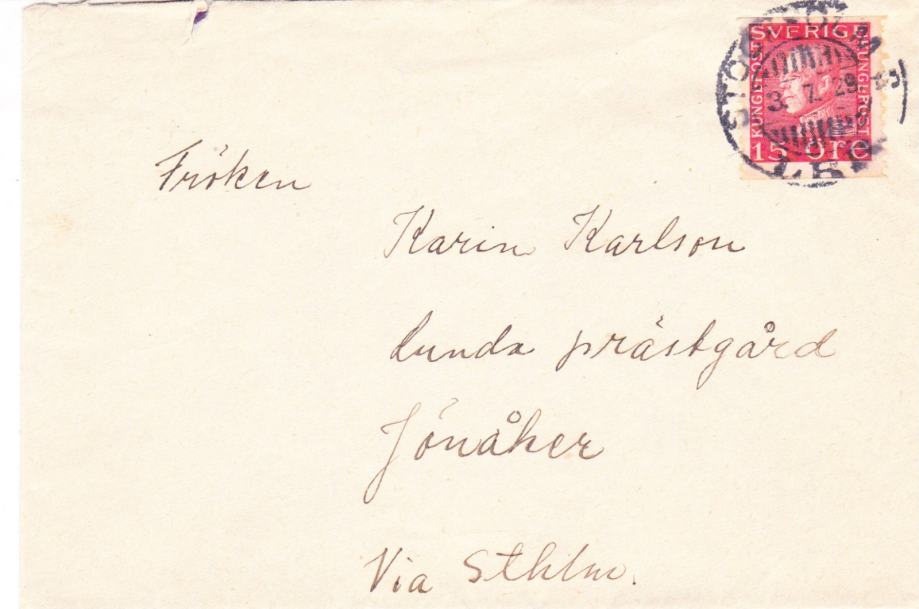 SVERIGE
KUNGL·POST KUNGL·POST
15 ÖRE
STOCKHOLM
3. 7. 29
LBR
Fröken
Karin Karlson
Lunda prästgård
Jönåker
Via Sthlm.